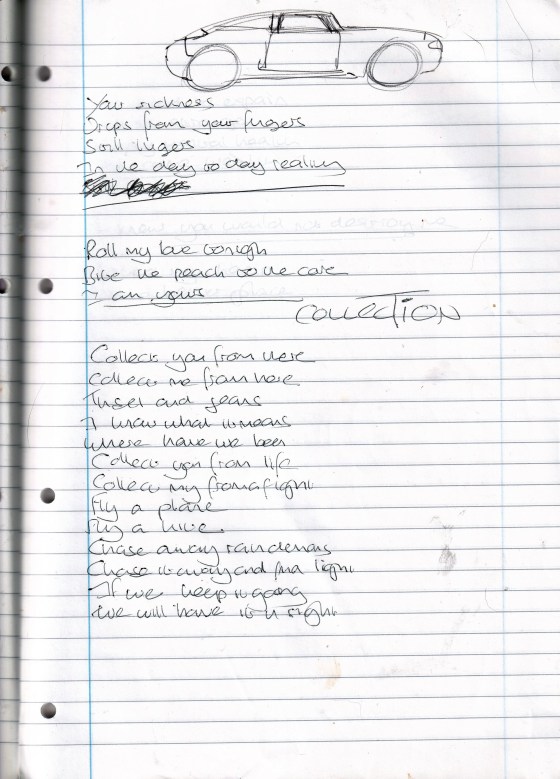 Your sickness
Drops from your fingers
Still lingers
In the day to day reality
Roll my love tonight
Bite the peach to the core
I am yours
COLLECTION
Collect you from there
Collect me from here
Tinsel and jeans
I know what it means
Where have we been
Collect you from life
Collect my from a fight
Fly a plane
Fly a kite.
Chase away
Chase it away and find light
If we keep it going
We will have it right